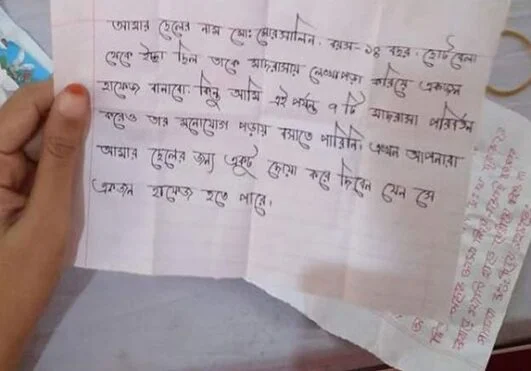 আমার ছেলের নাম মোঃ মোরসালিন. বয়স- ১৪ বছর. ছোট বেলা
থেকে ইচ্ছা ছিল তাকে মাদরাসায় লেখাপড়া করিয়ে একজন
হাফেজ বানাবো. কিন্তু আমি এই পর্যন্ত ৭ টি মাদরাসা পরিবর্তন
করেও তার মনোযোগ পড়ায় বসাতে পারিনি. এখন আপনারা
আমার ছেলের জন্য একটু দোয়া করে দিবেন যেন সে
একজন হাফেজ হতে পারে।